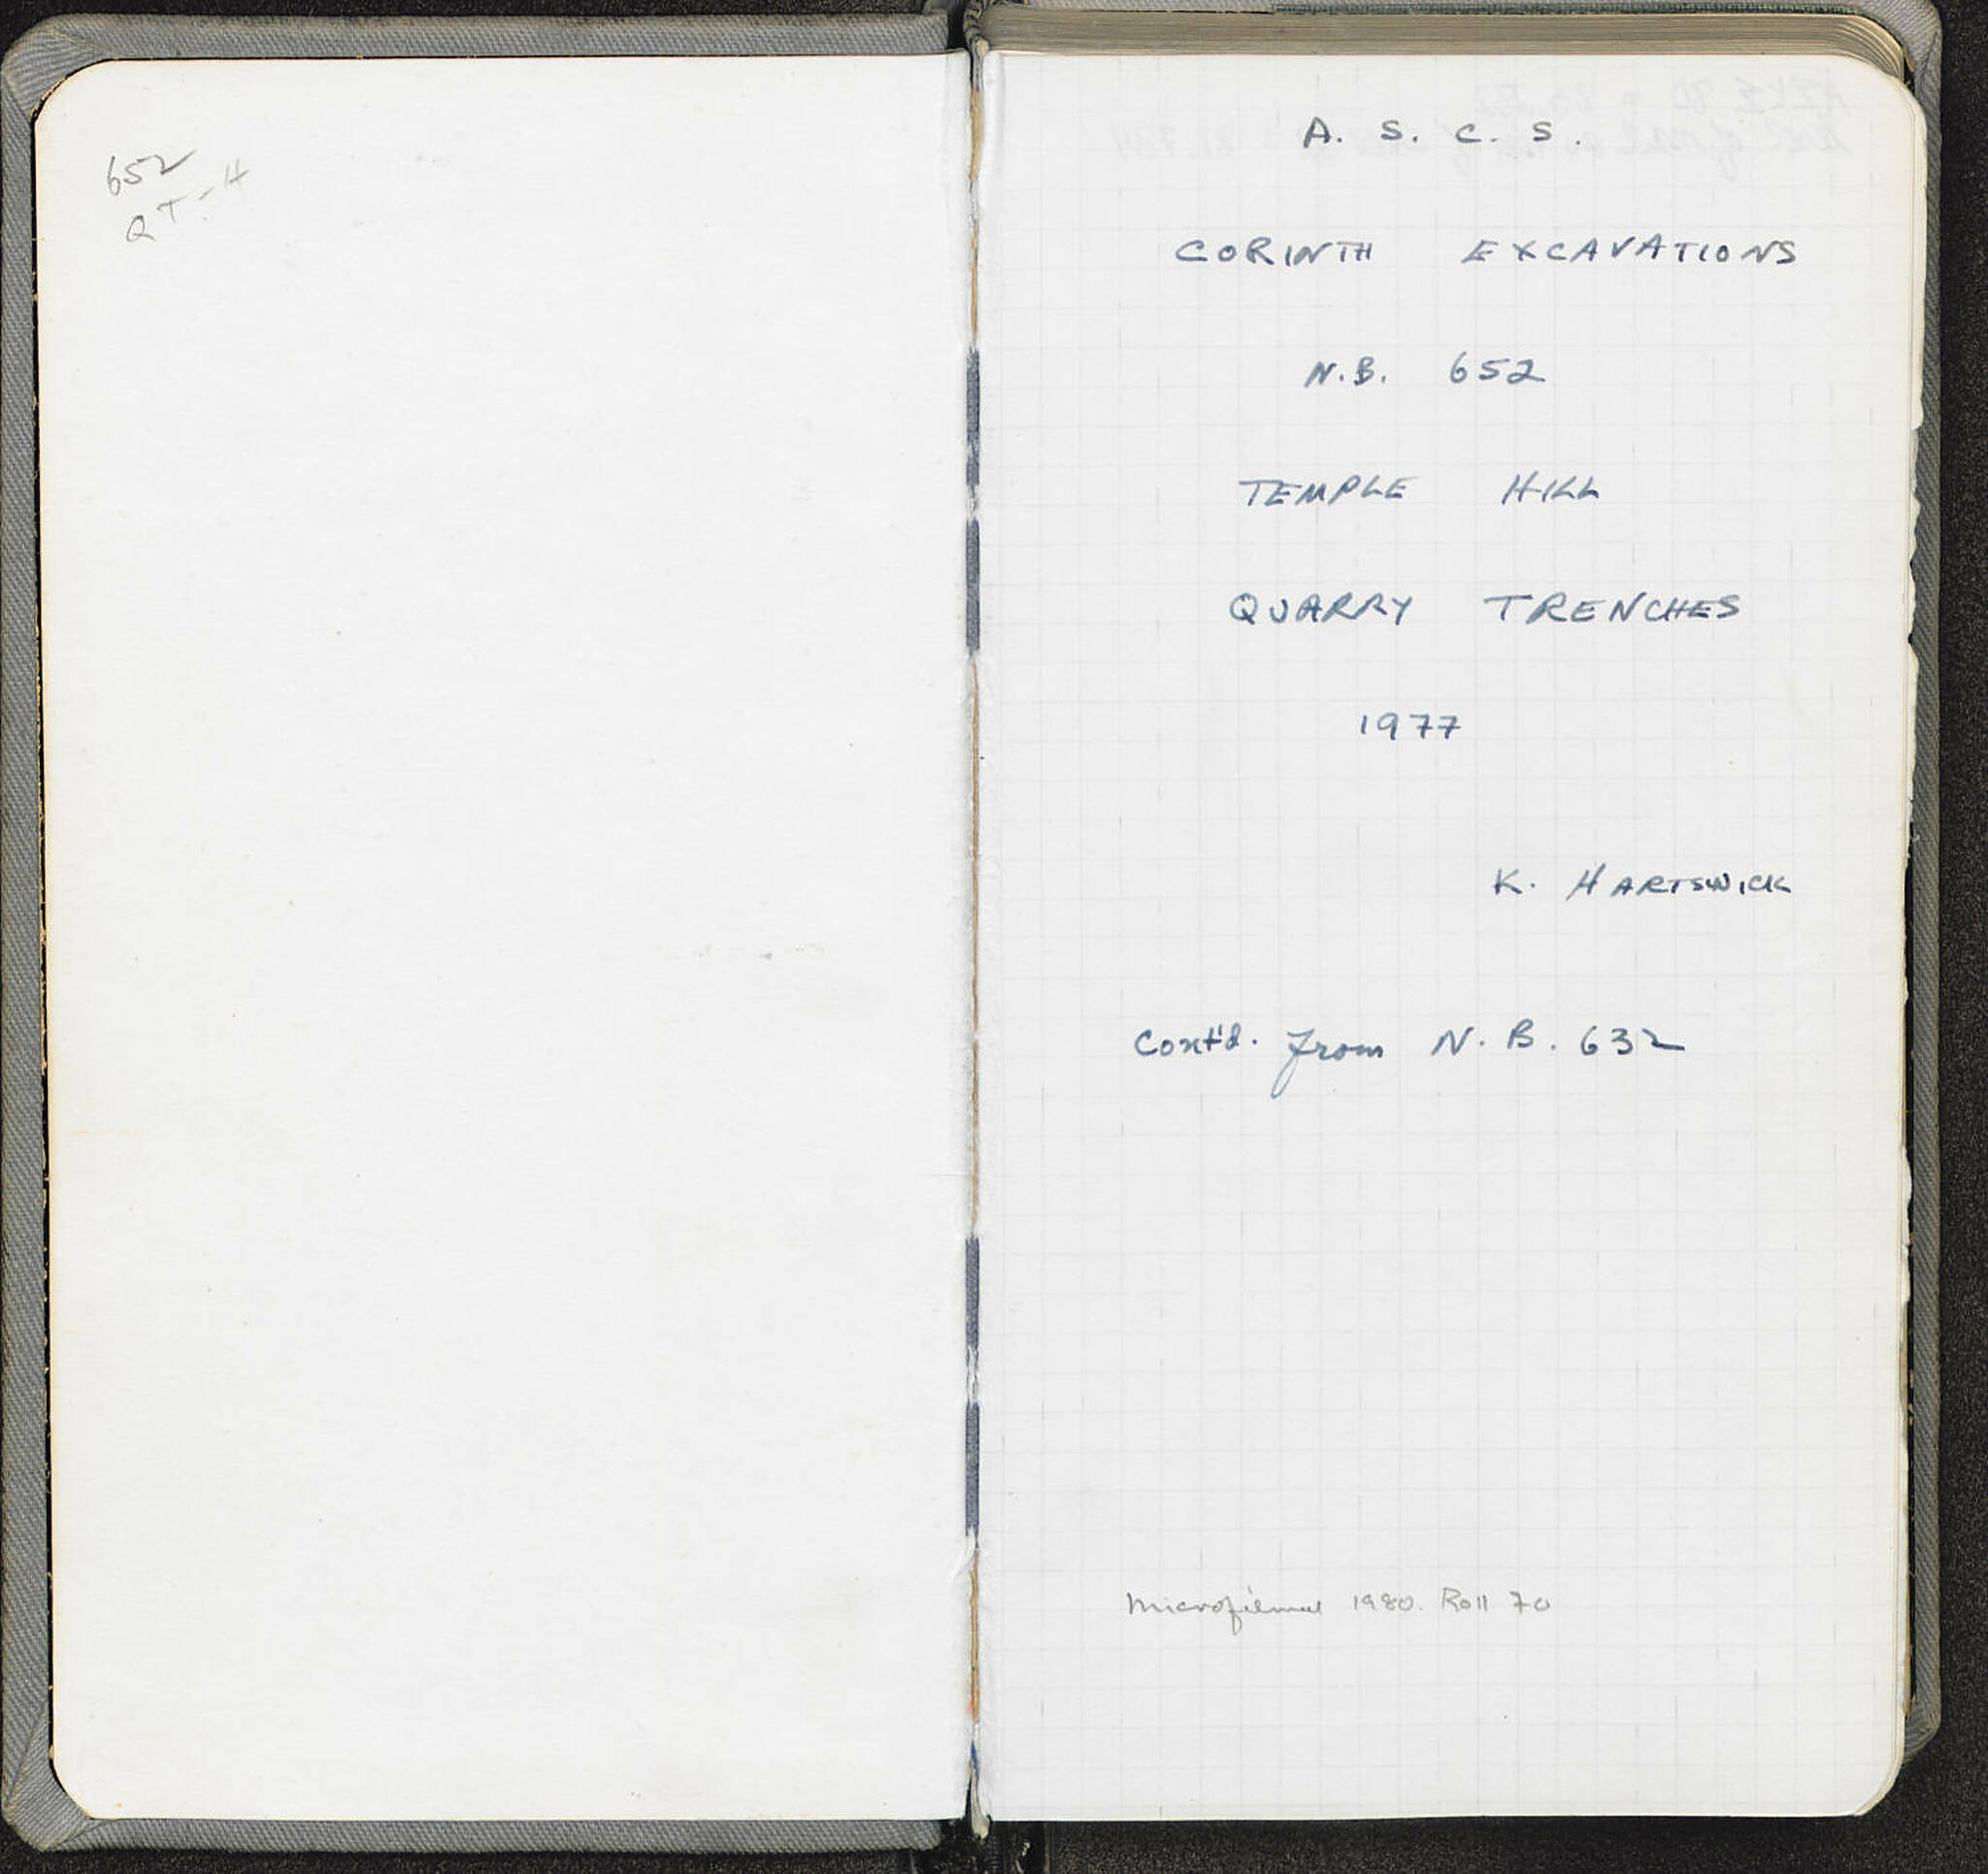 652
QT-H
A. S. C. S.
CORINTH EXCAVATIONS
N.B. 652
TEMPLE HILL
QUARRY TRENCHES
1977
K. HARTSWICK
Cont'd. from N.B. 632
Microfilmed 1980. Roll 70